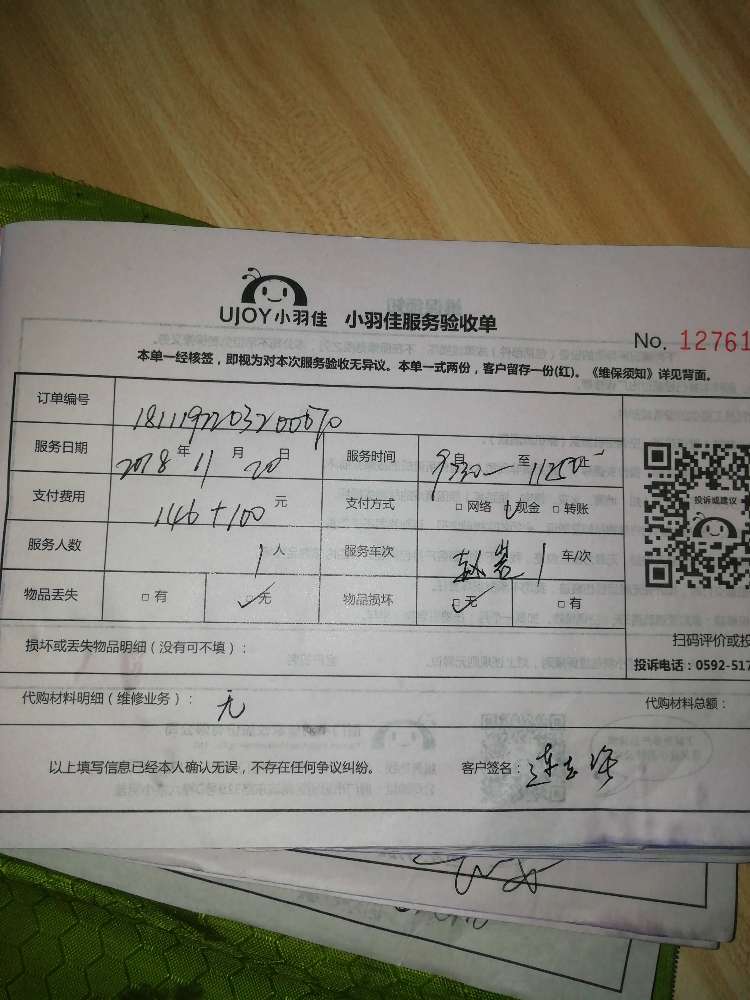 UJOY小羽佳 小羽佳服务验收单
No. 12761
本单一经核签，即视为对本次服务验收无异议。本单一式两份，客户留存一份(红)。《维保须知》详见背面。
订单编号 18111922032000570
服务日期 2018年11月20日 服务时间 自 930 至 1125 止
支付费用 146+100 元 支付方式 □网络 □现金 □转账
投诉或建议
服务人数 1人 服务车次 1 车/次
物品丢失 □有 □无 物品损坏 □无 □有
扫码评价或投
损坏或丢失物品明细（没有可不填）：
投诉电话：0592-517
代购材料明细（维修业务）： 无 代购材料总额：
以上填写信息已经本人确认无误，不存在任何争议纠纷。 客户签名：